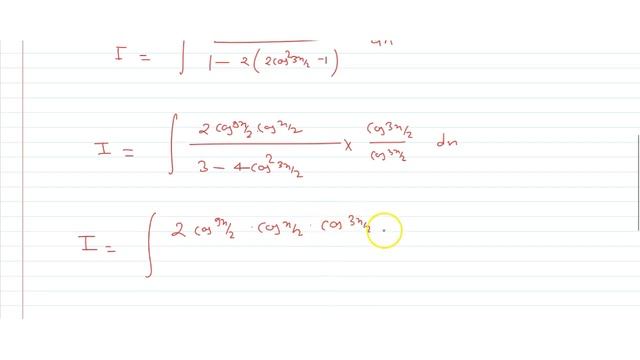 I = ∫ ─── dx
1 - 2(2cos²3x/2 - 1)
I = ∫ 2 cos9x/2 cosx/2 / 3 - 4cos²3x/2 × cos3x/2 / cos3x/2 dx
I = ∫ 2 cos9x/2 · cosx/2 · cos3x/2 ·